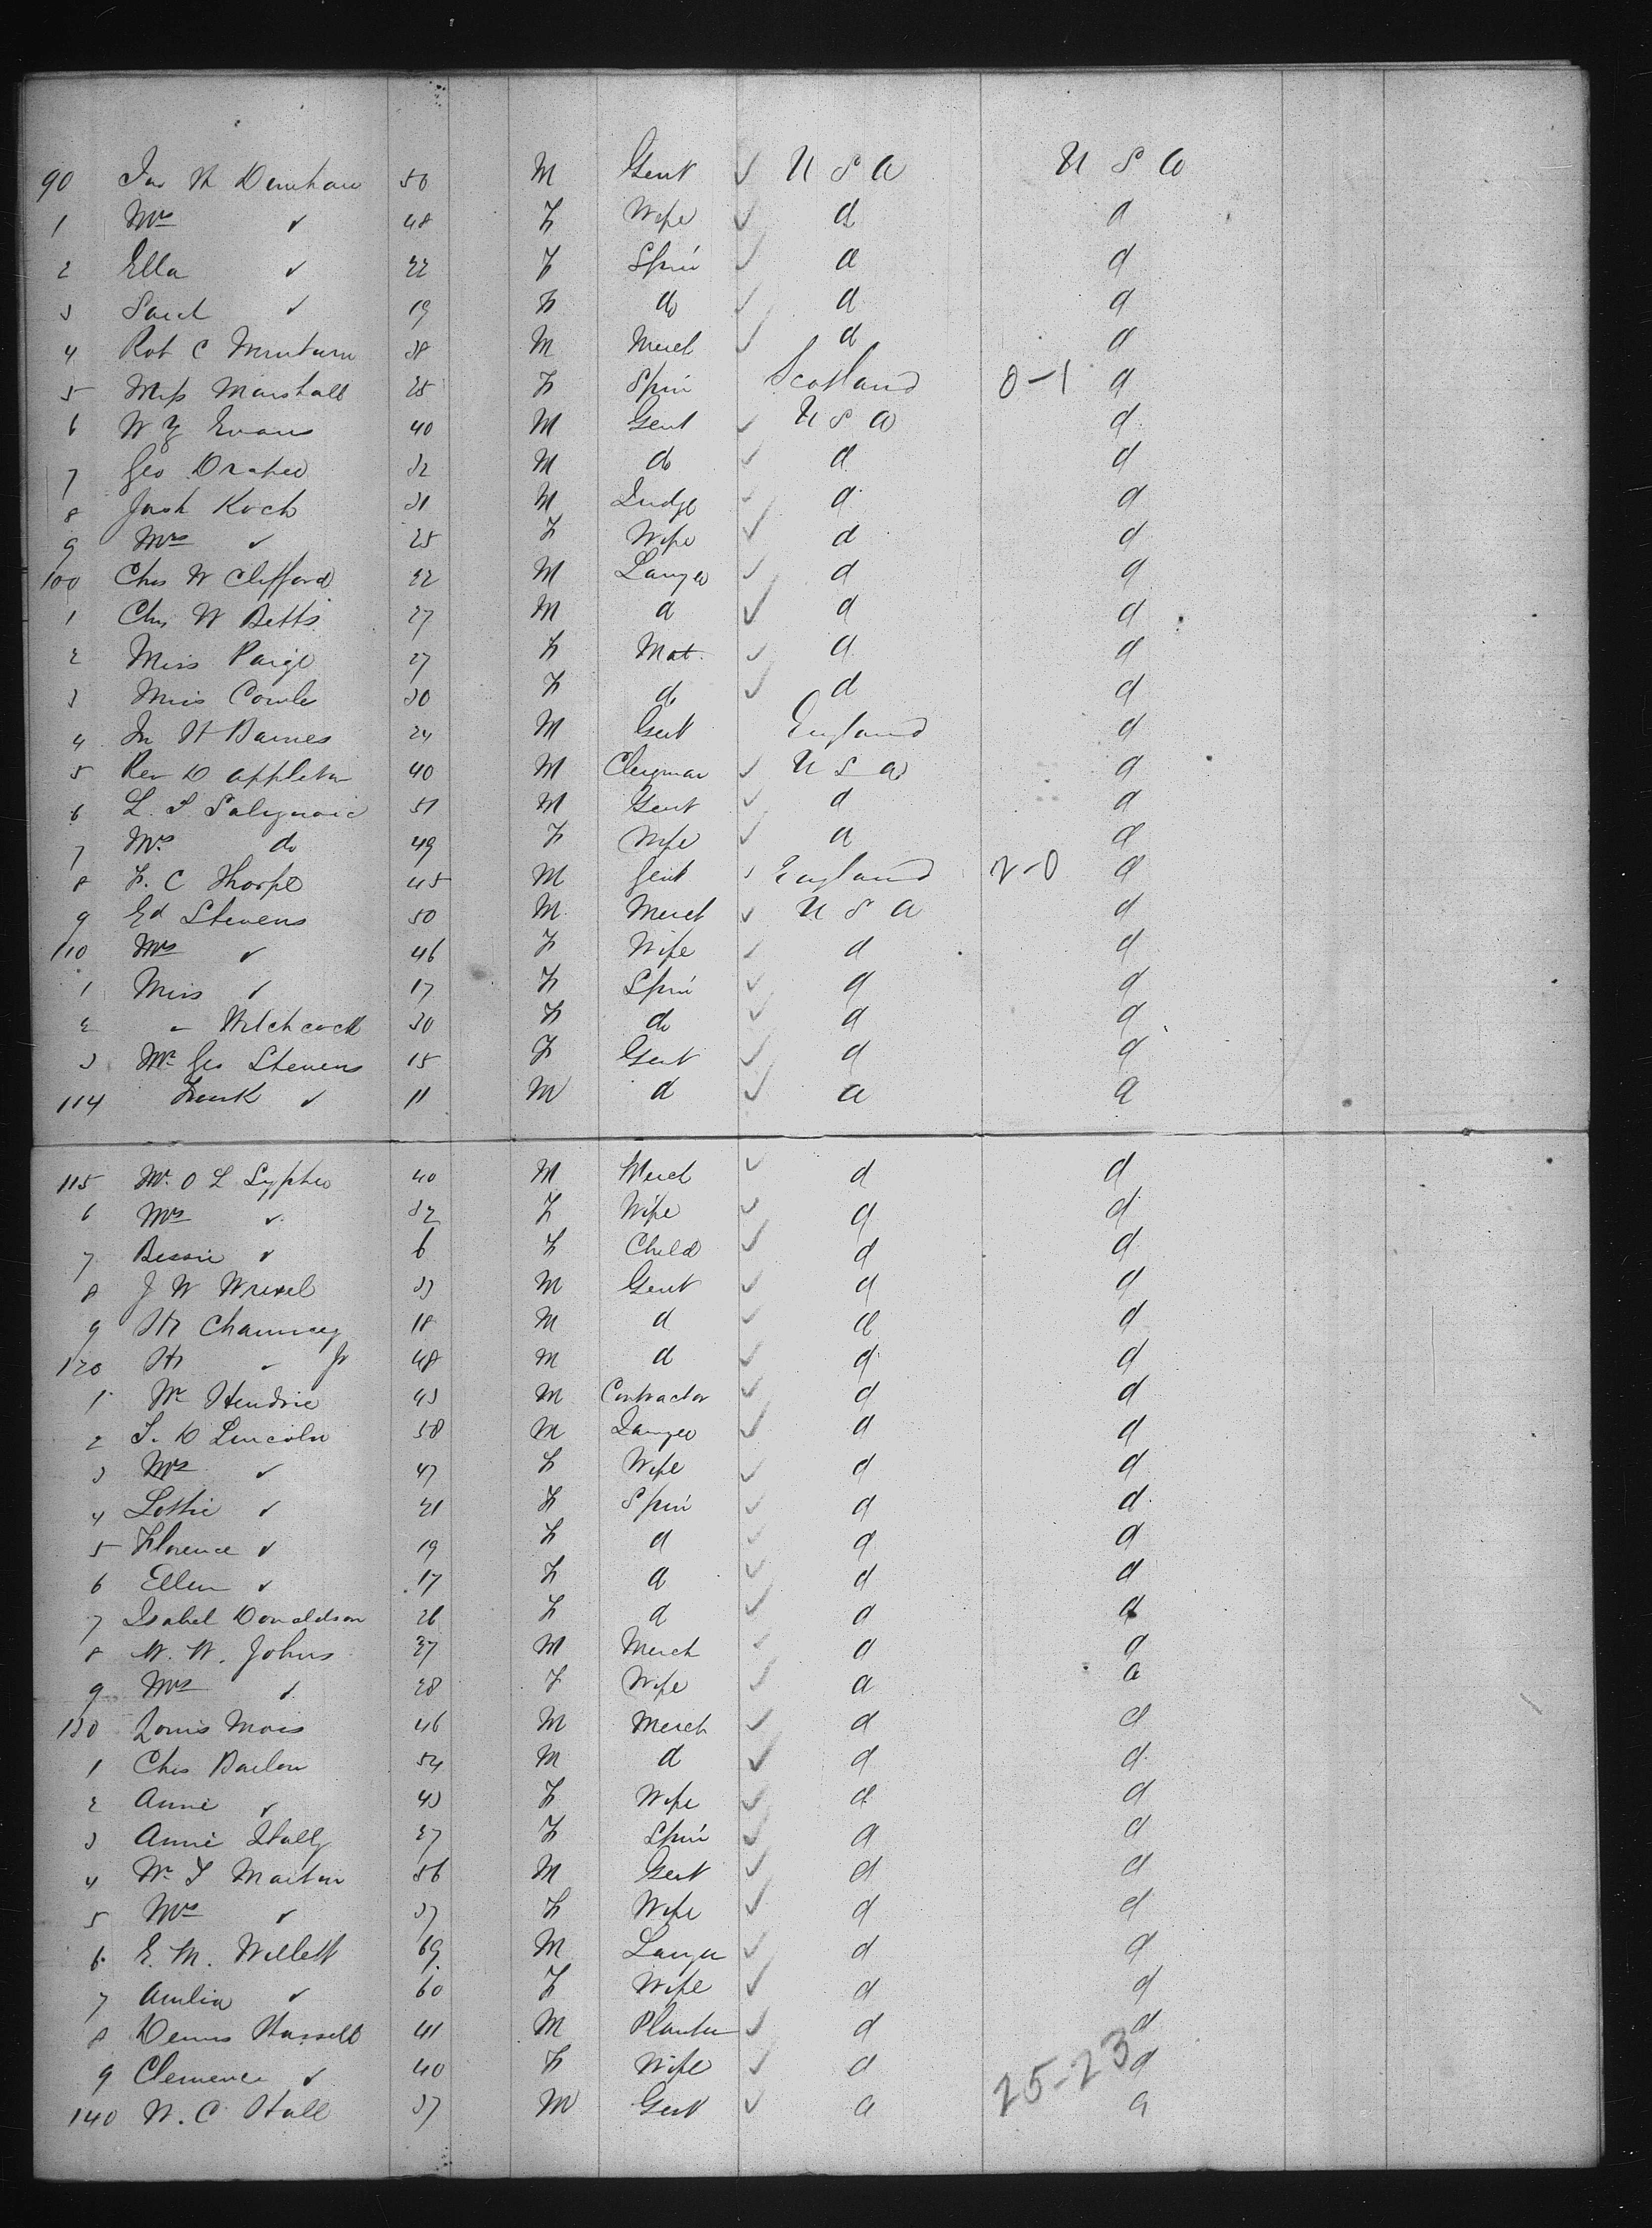 90 Jas H Denham 50 M Gent ✓ U S A U S A
1 Mrs ✓ 48 F Wife ✓ d d
2 Ella ✓ 22 F Spin ✓ d d
3 Sarah ✓ 19 F do ✓ d d
4 Rob C Minturn 38 M Merch ✓ d d
5 Miss Marshall 25 F Spin Scotland 0-1 d
6 W Evans 40 M Gent ✓ U S A d
7 Geo Draper 32 M do ✓ d d
8 Koch 31 M Judge ✓ d d
9 Mrs ✓ 25 F Wife ✓ d d
100 Chas W Clifford 32 M Lawyer ✓ d d
1 Chas W Betts 27 M d ✓ d d
2 Miss Paige 27 F Mat. ✓ d d
3 Miss 30 F do ✓ d d
4 Jn H Barnes 24 M Gent England d
5 Rev D Appleton 40 M Clergman ✓ U S A d
6 L. S. 51 M Gent ✓ d d
7 Mrs do 49 F Wife ✓ d d
8 F. C Thorpe 45 M Gent ✓ England 2-0 d
9 Ed Stevens 50 M Merch ✓ U S A d
110 Mrs ✓ 46 F Wife ✓ d d
1 Miss ✓ 17 F Spin ✓ d d
2 " Hitchcock 30 F do ✓ d d
3 Mr Geo Stevens 15 F Gent ✓ d d
114 Frank ✓ 11 M d ✓ d d
115 Mr O L Sypher 40 M Merch ✓ d d
6 Mrs ✓ 32 F Wife ✓ d d
7 Bessie ✓ 6 F Child ✓ d d
8 J W 33 M Gent ✓ d d
9 Hy Chauncey 18 M d ✓ d d
120 Hy " Jr 48 M d ✓ d d
1 Wm Hendrie 43 M Contractor ✓ d d
2 T. D Lincoln 58 M Lawyer ✓ d d
3 Mrs ✓ 47 F Wife ✓ d d
4 Lottie ✓ 21 F Spin ✓ d d
5 Florence ✓ 19 F d ✓ d d
6 Ellen ✓ 17 F d ✓ d d
7 Isabel Donaldson 26 F d ✓ d d
8 W. W. Johns 37 M Merch ✓ d d
9 Mrs ✓ 28 F Wife ✓ d d
130 Louis Mors 46 M Merch ✓ d d
1 Chas Barlow 54 M d ✓ d d
2 Annie ✓ 43 F Wife ✓ d d
3 Annie 27 F Spin ✓ d d
4 Wm F Martin 56 M Gent ✓ d d
5 Mrs ✓ 37 F Wife ✓ d d
6 E. M. Willett 69 M Lawyer ✓ d d
7 Amelia ✓ 60 F Wife ✓ d d
8 Dennis 41 M Planter ✓ d d
9 Clemence ✓ 40 F Wife ✓ d 25-23 d
140 W. C. Hall 37 M Gent ✓ d d